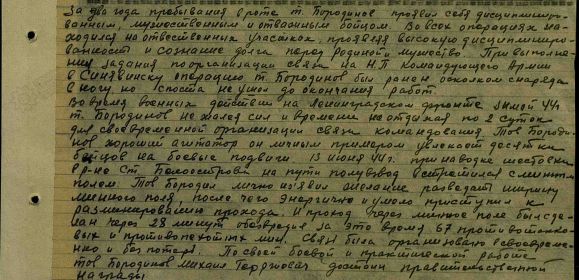 За два года пребывания в роте т. Бородинов проявил себя дисциплиниро-
ванным, мужественным и отважным бойцом. Во всех операциях на-
ходился на отвественных участках, проявляя высокую дисциплиниро-
ванность и сознание долга перед родиной и мужество. При выполне-
нии задания по организации связи на Н.П. Командующего Армии
в Синявинску операцию т. Бородинов был ранен осколком снаряда
в ногу, но с поста не ушол до окончания работ.
Во время военных действий на Ленинградском фронте зимой 44г.
т. Бородинов не жалея сил и времени не отдыхая по 2 суток
для своевременной организации связи командования. Тов Бороди-
нов хороший агитатор он личным примером увлекает десятки
бойцов на боевые подвиги. 13 июня 44г. при наводке шестовки
в р-не ст. Белоостров на пути полувзвод встретился с минным
полем. Тов Бородин лично изъявил желание разведать ширину
минного поля, после чего энергично и умело приступил к
разминированию прохода. И проход через минное поле был сде-
лан через 28 минут обезвредив за это время 67 противотанко-
вых и противопехотных мин. Связь была организована своевремен-
но и без потерь. По своей боевой и практической работе
тов Бородинов Михаил достоин правительственной
награды